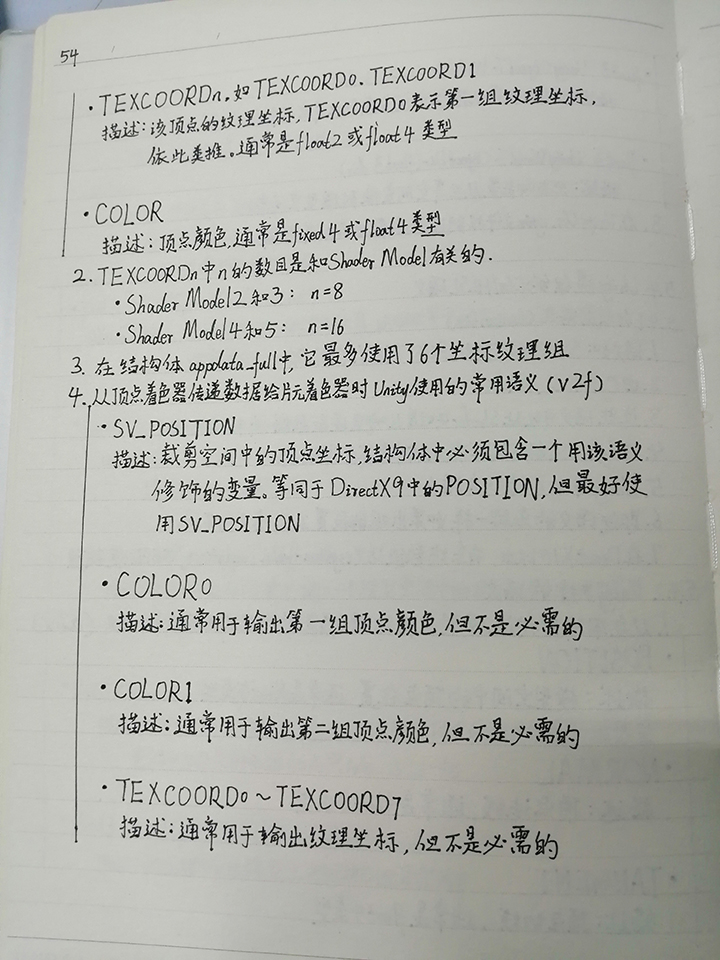 54
·TEXCOORDn,如TEXCOORD0、TEXCOORD1
描述:该顶点的纹理坐标,TEXCOORD0表示第一组纹理坐标,
依此类推。通常是float2或float4类型
·COLOR
描述:顶点颜色,通常是fixed4或float4类型
2.TEXCOORDn中n的数目是和Shader Model有关的.
·Shader Model2和3: n=8
·Shader Model4和5: n=16
3.在结构体appdata_full中,它最多使用了6个坐标纹理组
4.从顶点着色器传递数据给片元着色器时Unity使用的常用语义(v2f)
·SV_POSITION
描述:裁剪空间中的顶点坐标,结构体中必须包含一个用该语义
修饰的变量。等同于DirectX9中的POSITION,但最好使
用SV_POSITION
·COLOR0
描述:通常用于输出第一组顶点颜色,但不是必需的
·COLOR1
描述:通常用于输出第二组顶点颜色,但不是必需的
·TEXCOORD0~TEXCOORD7
描述:通常用于输出纹理坐标,但不是必需的